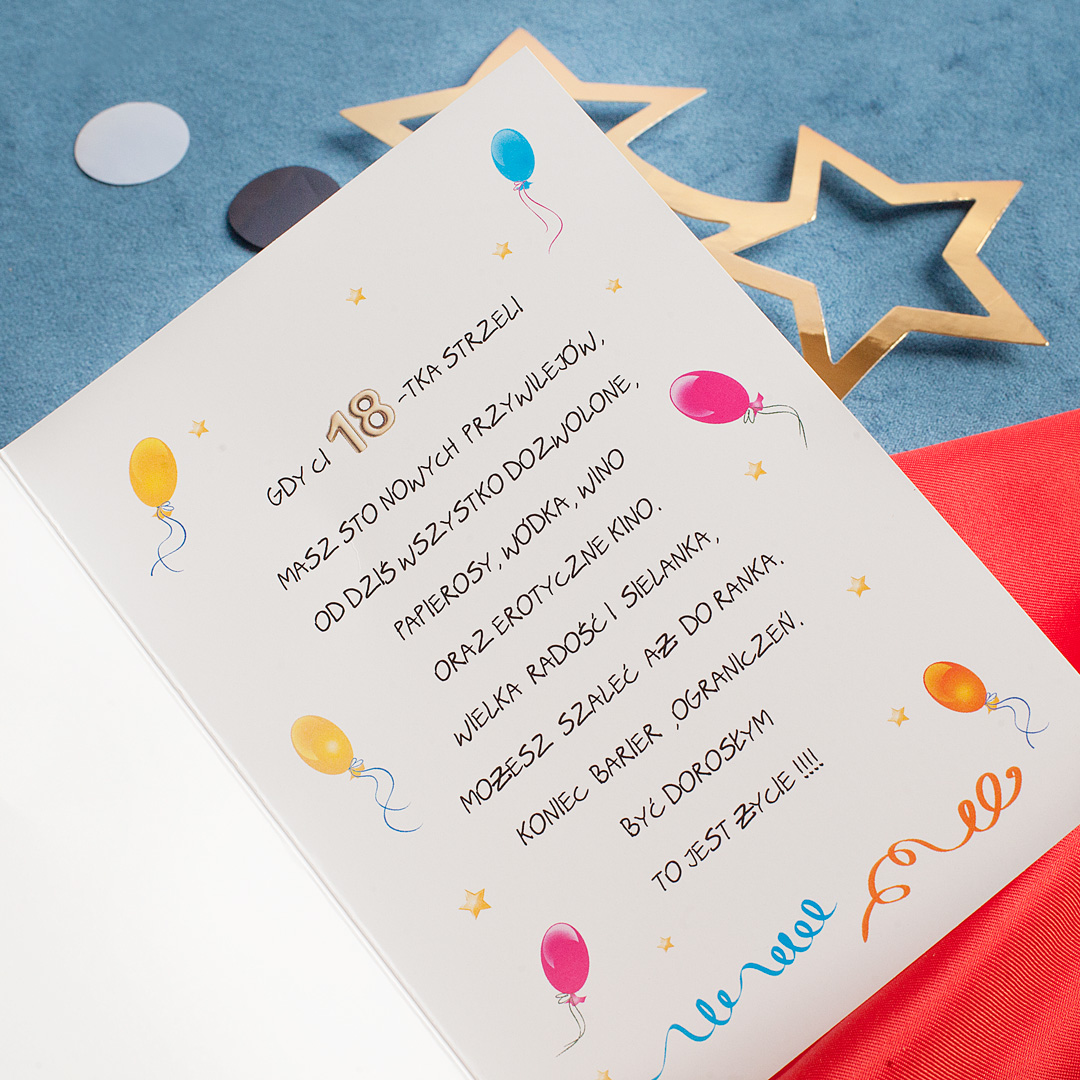 GDY CI 18 -TKA STRZELI
MASZ STO NOWYCH PRZYWILEJÓW,
OD DZIŚ WSZYSTKO DOZWOLONE,
PAPIEROSY, WÓDKA, WINO
ORAZ EROTYCZNE KINO.
WIELKA RADOŚĆ I SIELANKA,
MOŻESZ SZALEĆ AŻ DO RANKA.
KONIEC BARIER ,OGRANICZEŃ.
BYĆ DOROSŁYM
TO JEST ŻYCIE !!!!